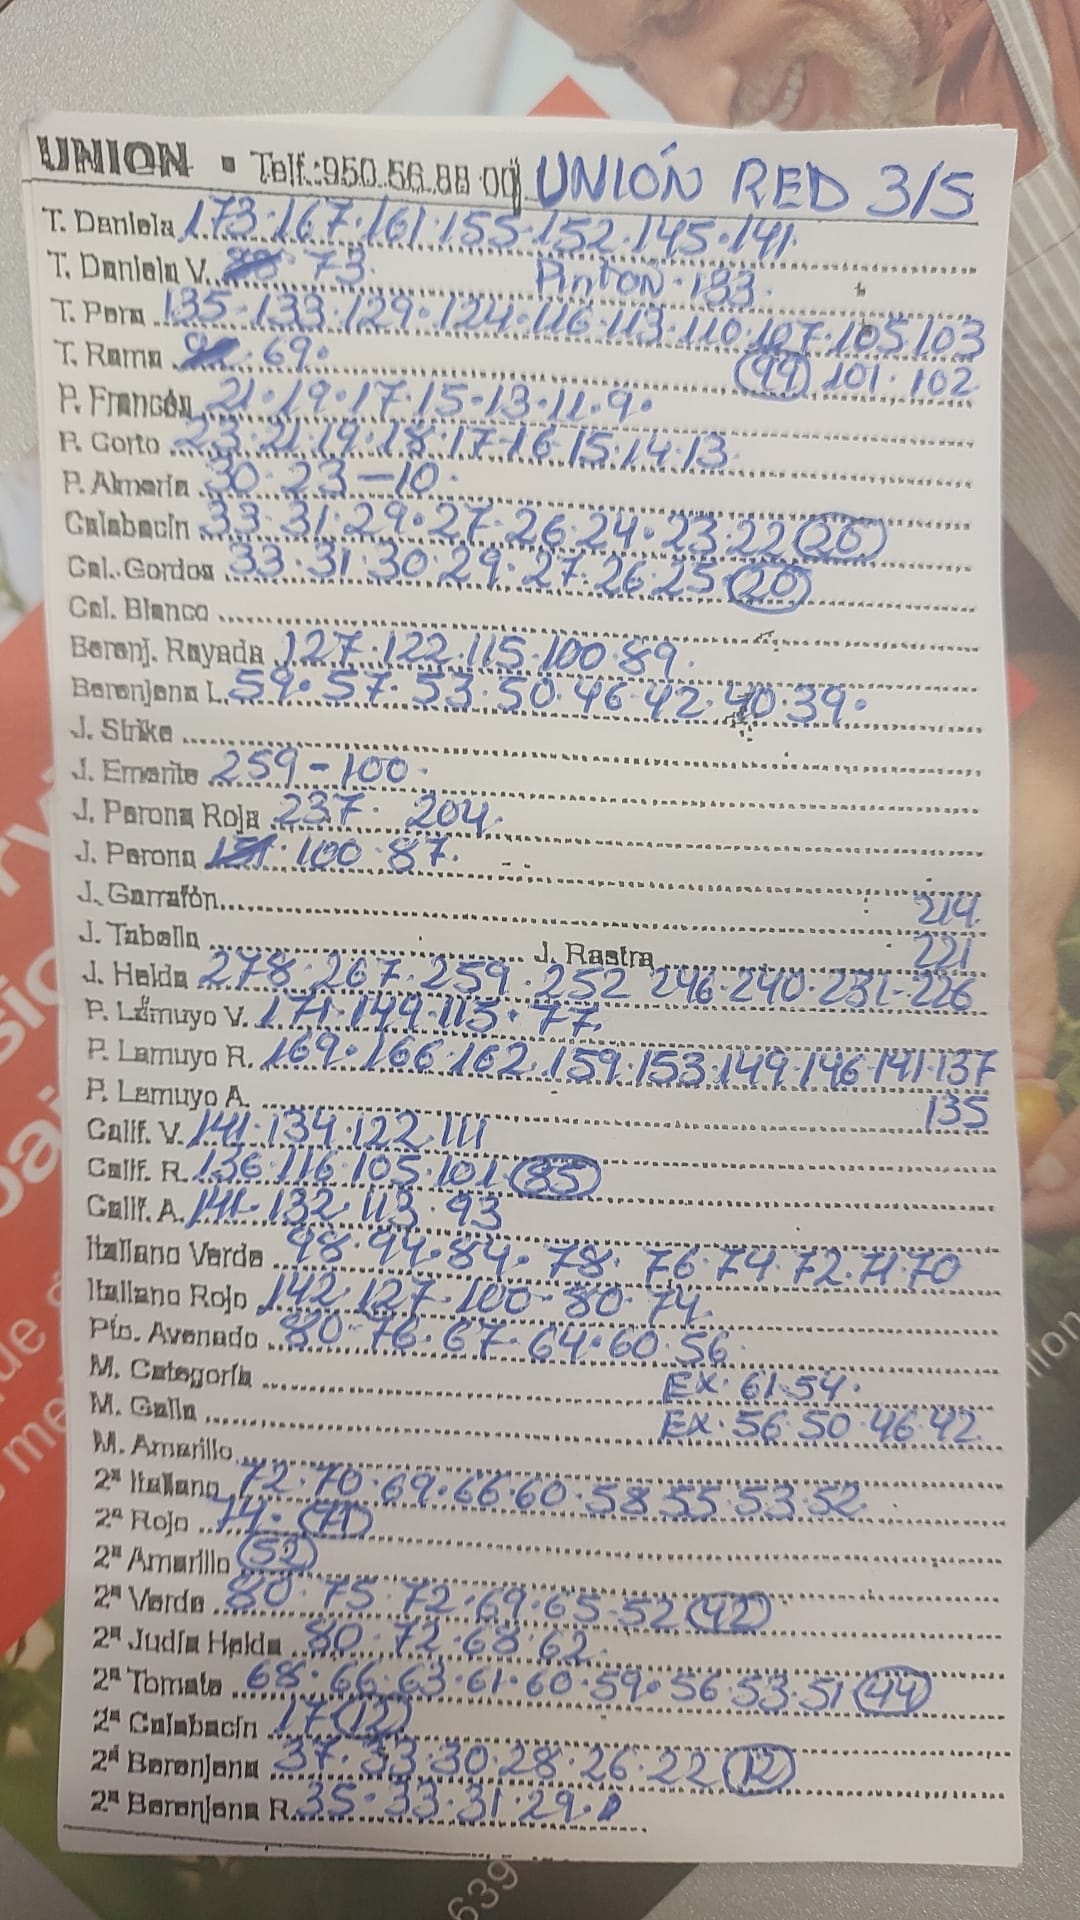 UNION ▪ Telf.:950.56.88 00 UNIÓN RED 3/5
T. Daniela 173·167·161·155·152·145·141.
T. Daniela V. 73. PINTÓN·133.
T. Pera 135·133·129·124·116·113·110·107·105·103
T. Rama 69. (99) 101·102
P. Francés 21·19·17·15·13·11·9.
P. Corto 23·21·19·18·17·16·15·14·13.
P. Almería 30·23-10.
Calabacín 33·31·29·27·26·24·23·22 (20)
Cal. Gordos 33·31·30·29·27·26·25 (20)
Cal. Blanco
Berenj. Rayada 127·122·115·100·89.
Berenjena L. 59·57·53·50·46·42·40·39.
J. Strike
J. Emerite 259-100.
J. Perona Roja 237· 204.
J. Perona 151·100·87.
J. Garrafón 214.
J. Tabella J. Rastra 221
J. Helda 278·267·259·252 246·240·231-226
P. Lamuyo V. 171·149·115·77.
P. Lamuyo R. 169·166·162·159·153·149·146·141·137
P. Lamuyo A. 135
Calif. V. 141·134·122·111
Calif. R. 136·116·105·101 (85)
Calif. A. 141·132·113·93
Italiano Verde 98·94·84·78· 76·74·72·71·70
Italiano Rojo 142·127·100·80·74.
Pto. Avenado 80·76·67·64·60·56.
M. Categoría EX·61·54.
M. Galla EX·56·50·46·42.
M. Amarillo
2ª Italiano 72·70·69·66·60·58·55·53·52.
2ª Rojo 74·(71)
2ª Amarillo (52)
2ª Verde 80·75·72·69·65·52 (42)
2ª Judía Helda 80·72·68·62.
2ª Tomate 68·66·63·61·60·59·56·53·51 (44)
2ª Calabacín 17 (12)
2ª Berenjena 37·33·30·28·26·22 (12)
2ª Berenjena R. 35·33·31·29.
639